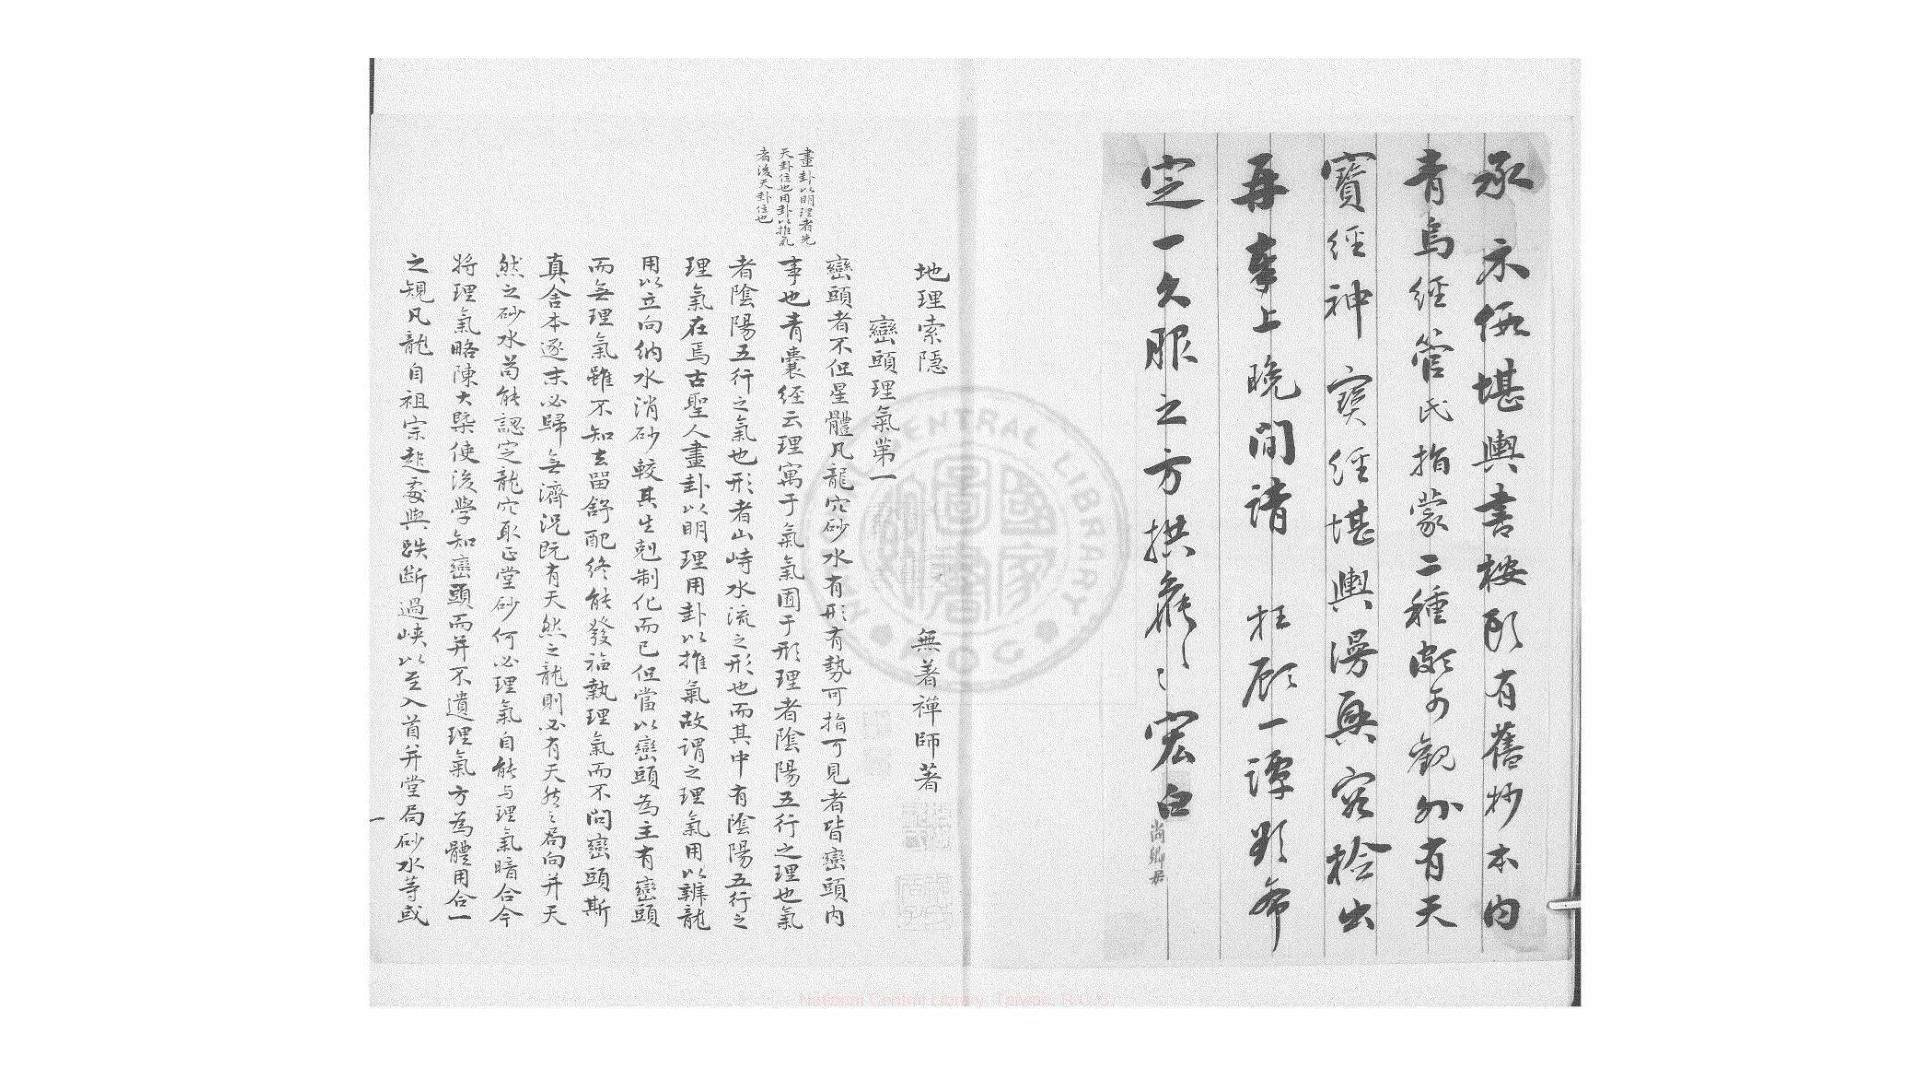 承示假堪輿書按頭有舊抄本內
青烏經管氏指蒙二種頗可觀外有天
寶經神寶經堪輿漫興容檢出
再奉上晚間請枉顧一譚眇希
定一久服之方拱 宏白
尚鄉君
地理索隱 無著禪師著
巒頭理氣第一
畫卦以明理者先
天卦位也用卦以推氣
者後天卦位也
巒頭者不但星體凡龍穴砂水有形有勢可指可見者皆巒頭內
事也青囊經云理寓于氣氣囿于形理者陰陽五行之理也氣
者陰陽五行之氣也形者山峙水流之形也而其中有陰陽五行之
理氣在焉古聖人畫卦以明理用卦以推氣故謂之理氣用以辨龍
用以立向納水消砂較其生剋制化而已但當以巒頭為主有巒頭
而無理氣雖不知去留舒配終能發福執理氣而不問巒頭斯
真舍本逐末必歸無濟況既有天然之龍則必有天然之局向并天
然之砂水苟能認定龍穴取正堂砂何必理氣自能与理氣暗合今
將理氣略陳大槩使後學知巒頭而并不遺理氣方為體用合一
之規凡龍自祖宗起處與跌斷過峽以至入首并堂局砂水等或
一
NATIONAL CENTRAL LIBRARY
國家圖書館
National Central Library, Taiwan, R.O.C